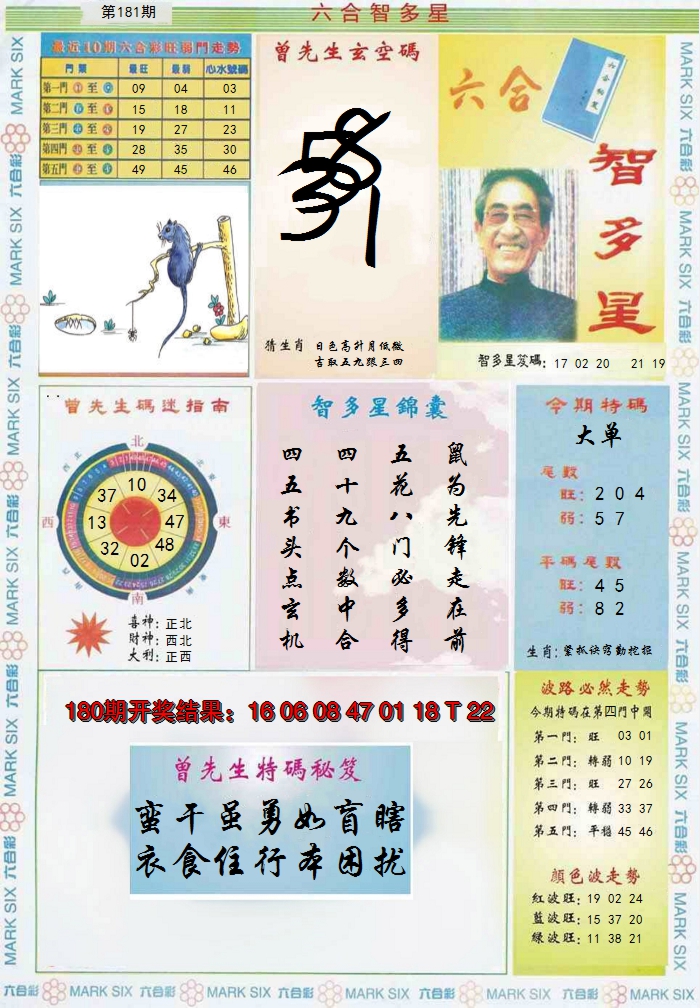 第181期
六合智多星
最近10期六合彩旺弱門走勢
門票 最旺 最弱 心水號碼
第一門 至 09 04 03
第二門 至 15 18 11
第三門 至 19 27 23
第四門 至 28 35 30
第五門 至 49 45 46
曾先生玄空碼
猜生肖 日色高升月低微
吉取五九跟三四
六合
智多星
智多星笈碼: 17 02 20 21 19
曾先生碼迷指南
北
西
東
南
10
34
47
48
02
32
13
37
喜神: 正北
財神: 西北
大利: 正西
智多星錦囊
鼠为先锋走在前
五花八门必多得
四十九个数中合
四五书头点玄机
今期特碼
大单
尾數
旺: 2 0 4
弱: 5 7
平碼尾數
旺: 4 5
弱: 8 2
生肖: 紧抓诀窍勤挖掘
180期开奖结果：16 06 08 47 01 18 T 22
曾先生特碼秘笈
蛮干虽勇如盲瞎
衣食住行本困扰
波路必然走勢
今期特碼在第四門中開
第一門: 旺 03 01
第二門: 轉弱 10 19
第三門: 旺 27 26
第四門: 轉弱 33 37
第五門: 平穩 45 46
顏色波走勢
紅波旺: 19 02 24
藍波旺: 15 37 20
綠波旺: 11 38 21
MARK SIX 六合彩